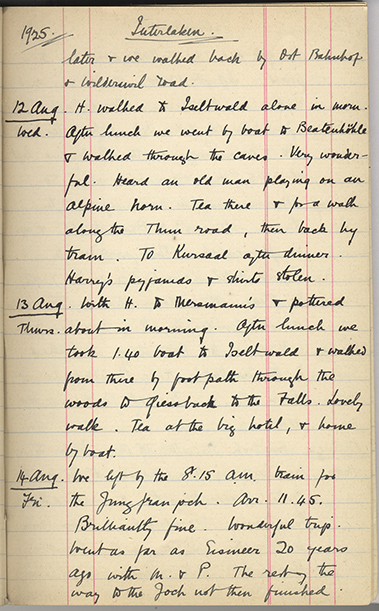 1925. Interlaken.
later & we walked back by Ost Bahnhof
& Wilderswil road.
12 Aug. H. walked to Iseltwald alone in morn.
Wed. After lunch we went by boat to Beatenhöhle
& walked through the caves. Very wonder-
ful. Heard an old man playing on an
Alpine horn. Tea there & for a walk
along the Thun road, then back by
tram. To Kursaal after dinner.
Harry's pyjamas & shirts stolen.
13 Aug. With H. to & pottered
Thurs. about in morning. After lunch we
took 1.40 boat to Iseltwald & walked
from there by footpath through the
woods to Giessbach to the Falls. Lovely
walk. Tea at the big hotel, & home
by boat.
14 Aug. We left by the 8.15 am. train for
Fri. the Jungfraujoch. Arr. 11.45.
Brilliantly fine. Wonderful trip.
Went as far as Eismeer 20 years
ago with M. & P. The rest of the
way to the Joch not then finished.